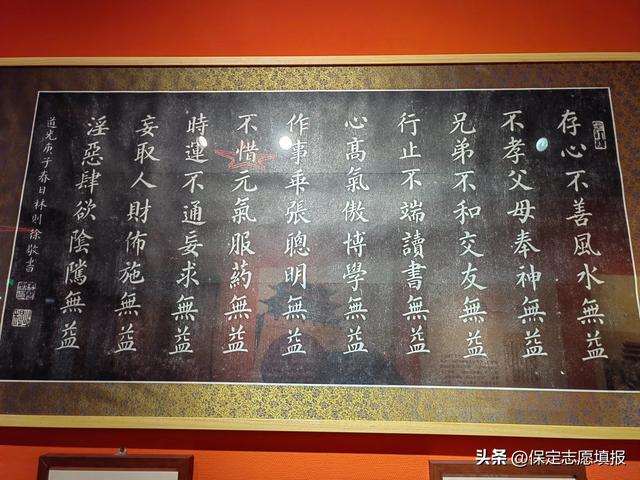 存心不善風水無益
不孝父母奉神無益
兄弟不和交友無益
行止不端讀書無益
心高氣傲博學無益
作事乖張聰明無益
不惜元氣服藥無益
時運不通妄求無益
妄取人財佈施無益
淫惡肆欲陰隲無益
道光庚子春日林則徐敬書
头条 @保定志愿填报